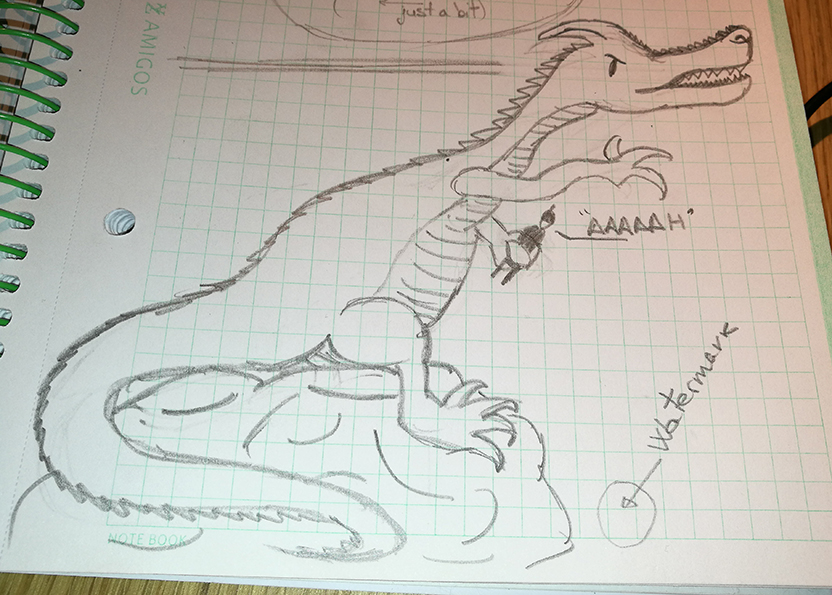 just a bit)
& AMIGOS
"AAAAAH"
Watermark
NOTE BOOK